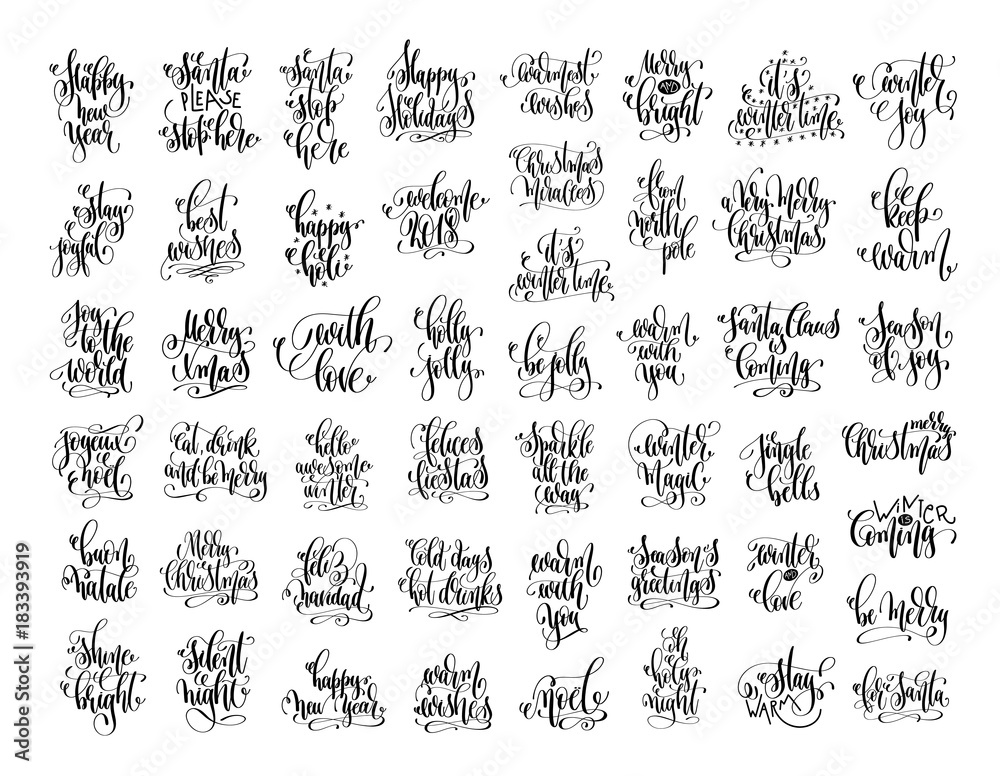 Happy
new
Year
Santa
PLEASE
stop here
Santa
stop
here
Happy
Holidays
warmest
wishes
Merry
AND
bright
it's
winter time
winter
joy
stay
joyful
best
wishes
happy
holi
welcome
2018
Christmas
miracles
it's
winter time
from
north
pole
a Very Merry
Christmas
keep
warm
Joy
to the
world
Merry
Xmas
with
love
holly
jolly
be jolly
warm
with
you
Santa Claus
is
Coming
Season
of joy
joyeux
noel
Eat, drink
and be merry
hello
awesome
winter
felices
fiestas
Sparkle
all the
way
winter
Magic
jingle
bells
merry
Christmas
WiNTER
IS
Coming
buon
natale
Merry
Christmas
feliz
navidad
Cold days
hot drinks
warm
with
You
Season's
greetings
winter
AND
love
be merry
Shine
bright
Silent
night
happy
new year
warm
wishes
noel
oh
holy
night
stay
WARM
for Santa
Adobe Stock | #183393919
Adobe Stock